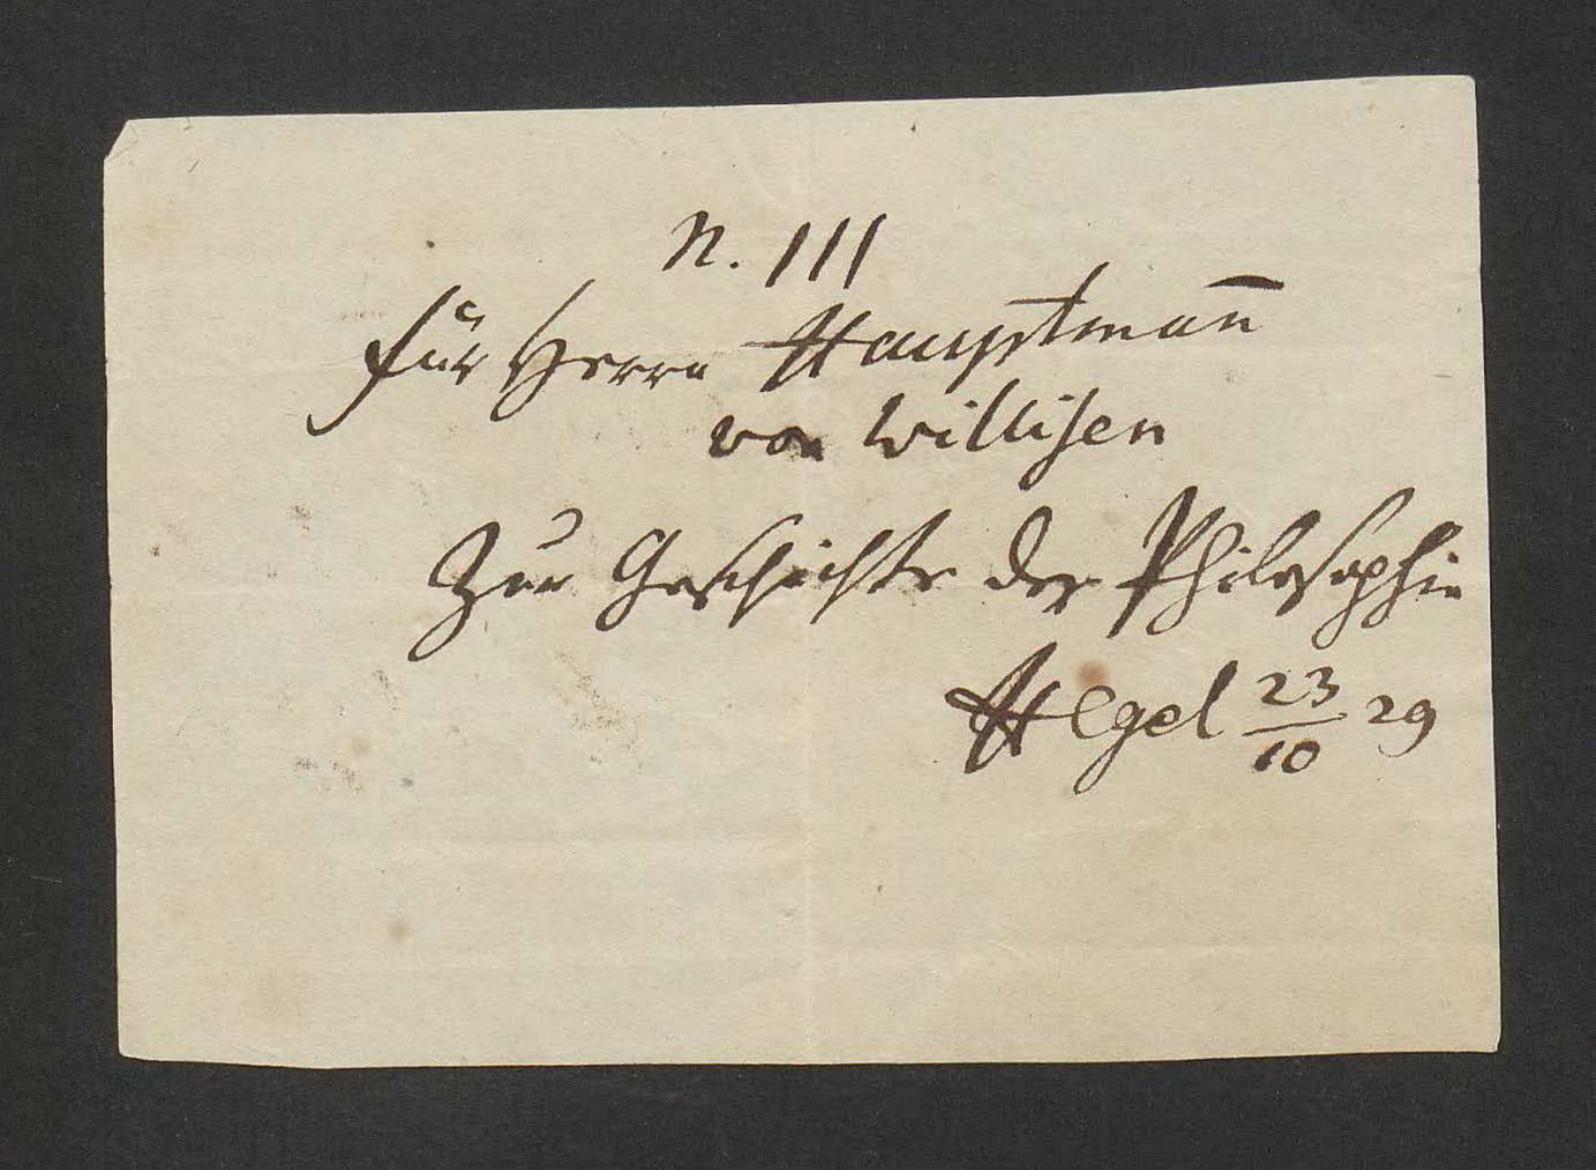 N. 111
für Herrn Hauptmañ
von Willisen
Zur Geschichte der Philosophie
Hegel 23/10 29